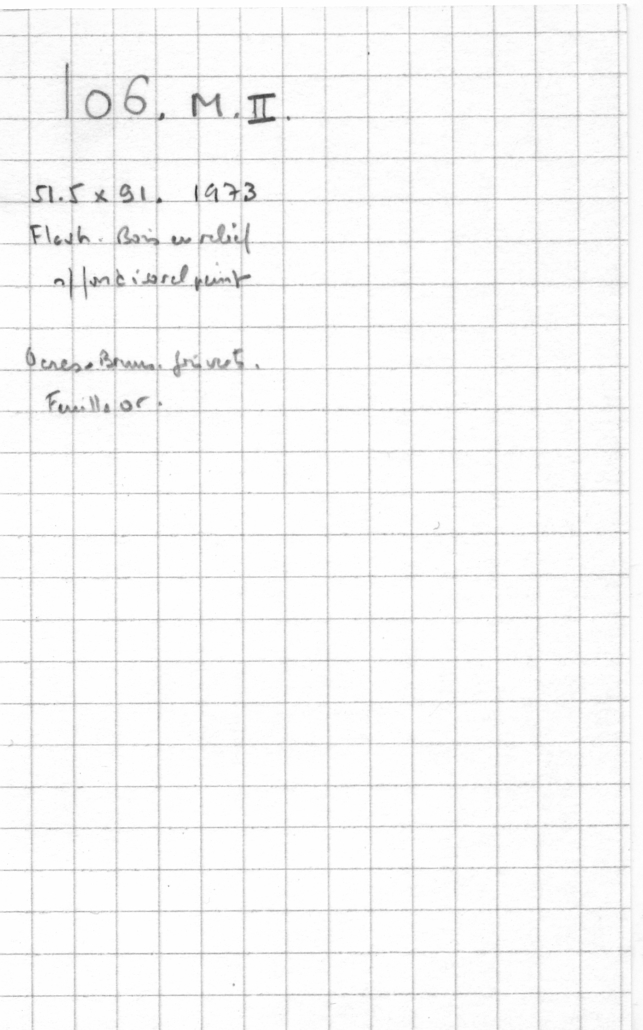 106. M. II.
51.5 x 91. 1973
Flash. Bois en relief
s/ fond isorel peint
Ocres. Bruns. gris verts.
Feuille or.